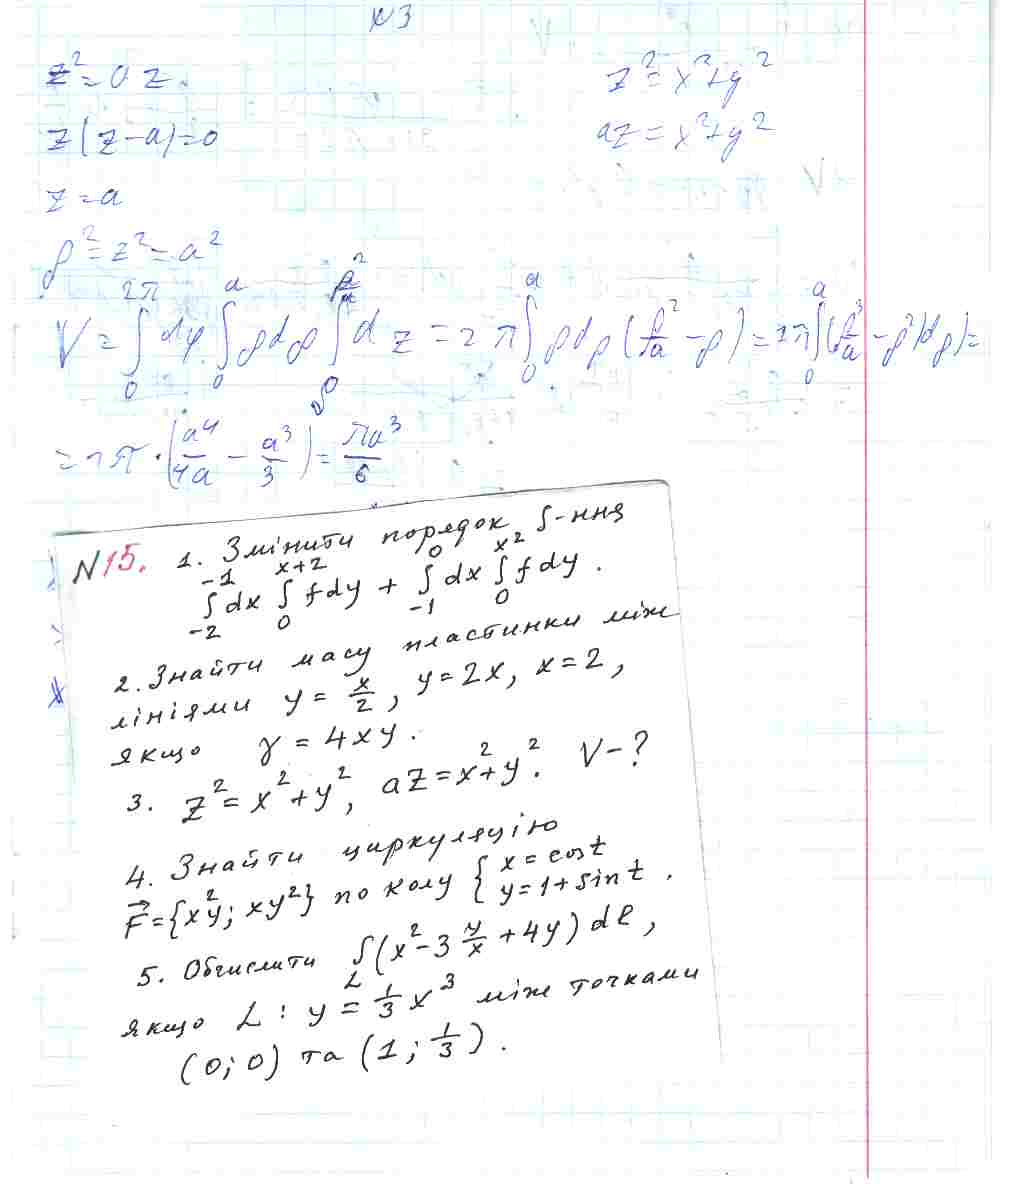 №3
z² = az
z² = x² + y²
z(z-a)=0
az = x² + y²
z = a
ρ² = z² = a²
V = ∫₀^{2π} dφ ∫₀^a ρdρ ∫_ρ^{ρ²/a} dz = 2π ∫₀^a ρdρ (ρ²/a - ρ) = 2π ∫₀^a (ρ³/a - ρ²)dρ) =
= 2π · (a⁴/4a - a³/3) = πa³/6
N15. 1. Змінити порядок ∫-ння
∫_{-2}^{-1} dx ∫_0^{x+2} f dy + ∫_{-1}^0 dx ∫_0^{x²} f dy .
2. Знайти масу пластинки між
лініями y = x/2 , y = 2x, x = 2 ,
якщо γ = 4xy .
3. z² = x² + y² , az = x² + y² . V - ?
4. Знайти циркуляцію
F⃗ = {x²y; xy²} по колу { x = cost
y = 1 + sint .
5. Обчислити ∫_L (x² - 3 y/x + 4y) dl ,
якщо L : y = 1/3 x³ між точками
(0; 0) та (1; 1/3) .